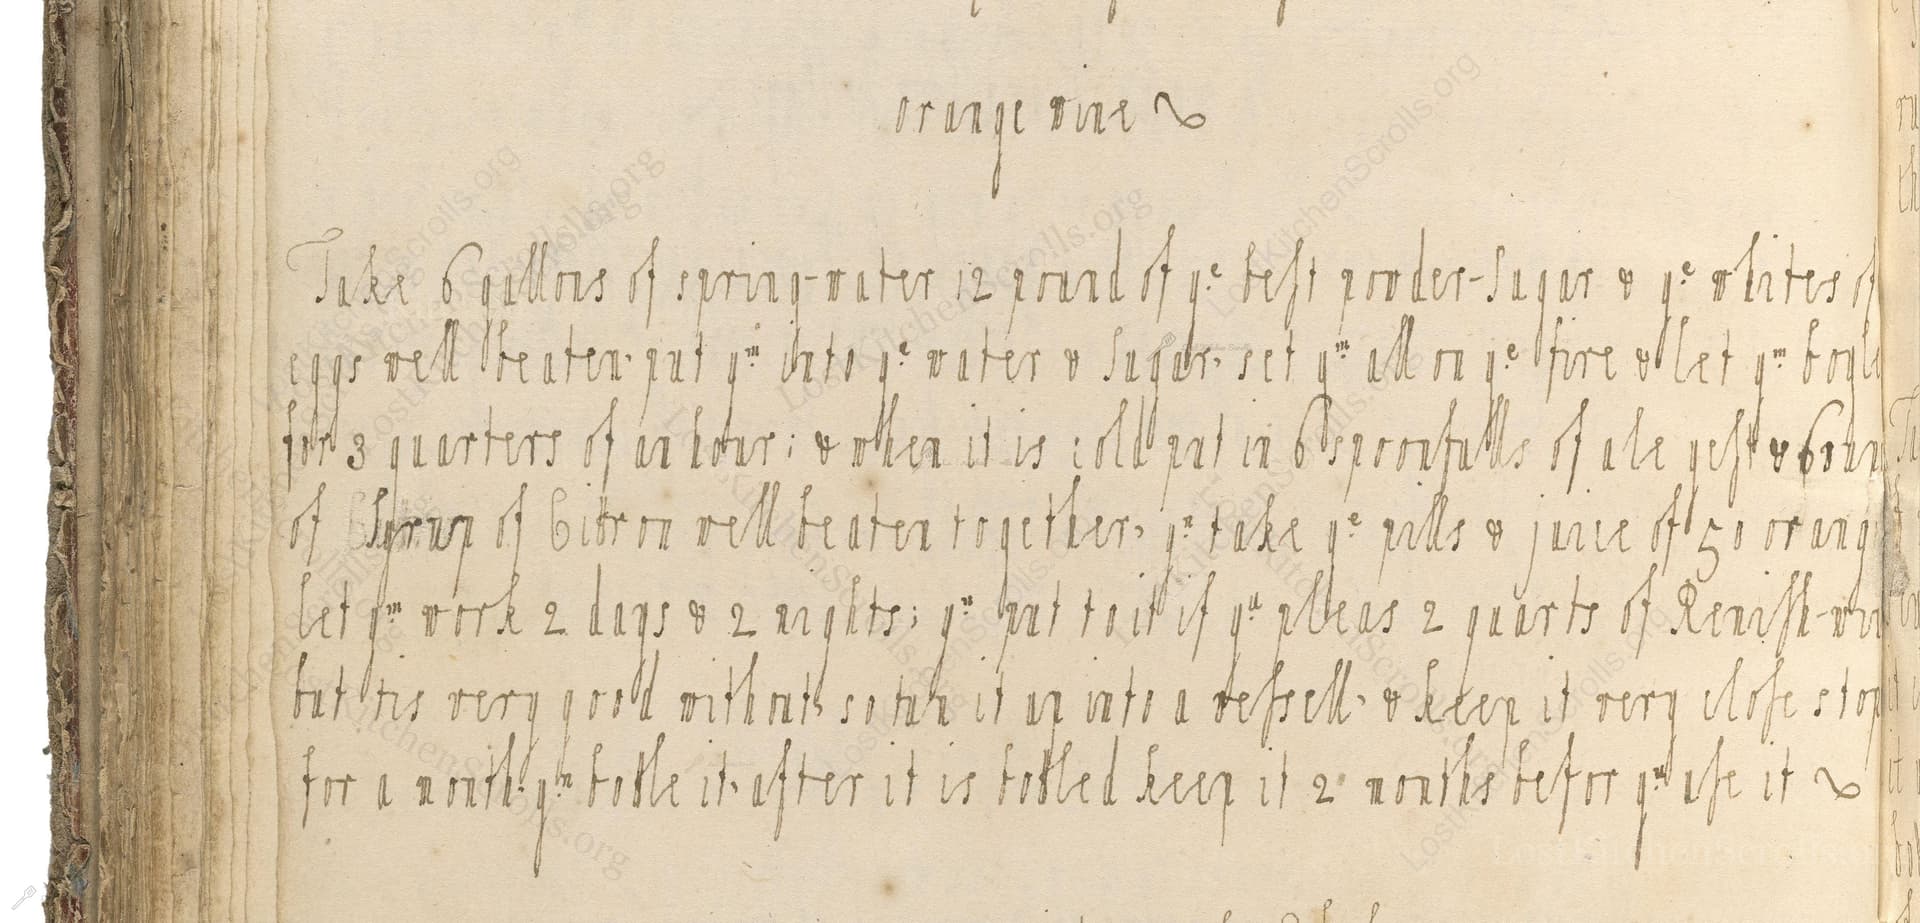 orange wine
Take 6 gallons of spring-water 12 pound of yᵉ best powder-Sugar & yᵉ whites of
eggs well beaten, put yᵐ into yᵉ water & Sugar, set yᵐ all on yᵉ fire & let yᵐ boyle
for 3 quarters of an hour; & when it is cold put in 6 spoonfulls of ale yest & 6
of Syrup of Citron well beaten together, yⁿ take yᵉ pills & juice of 50 orang
let yᵐ work 2 days & 2 nights; yⁿ put to it if yᵘ pleas 2 quarts of Renish-win
but tis very good without, so tun it up into a vessell, & keep it very close stop
for a month, yⁿ bottle it, after it is bottled keep it 2 months befor yᵘ use it
LostKitchenScrolls.org